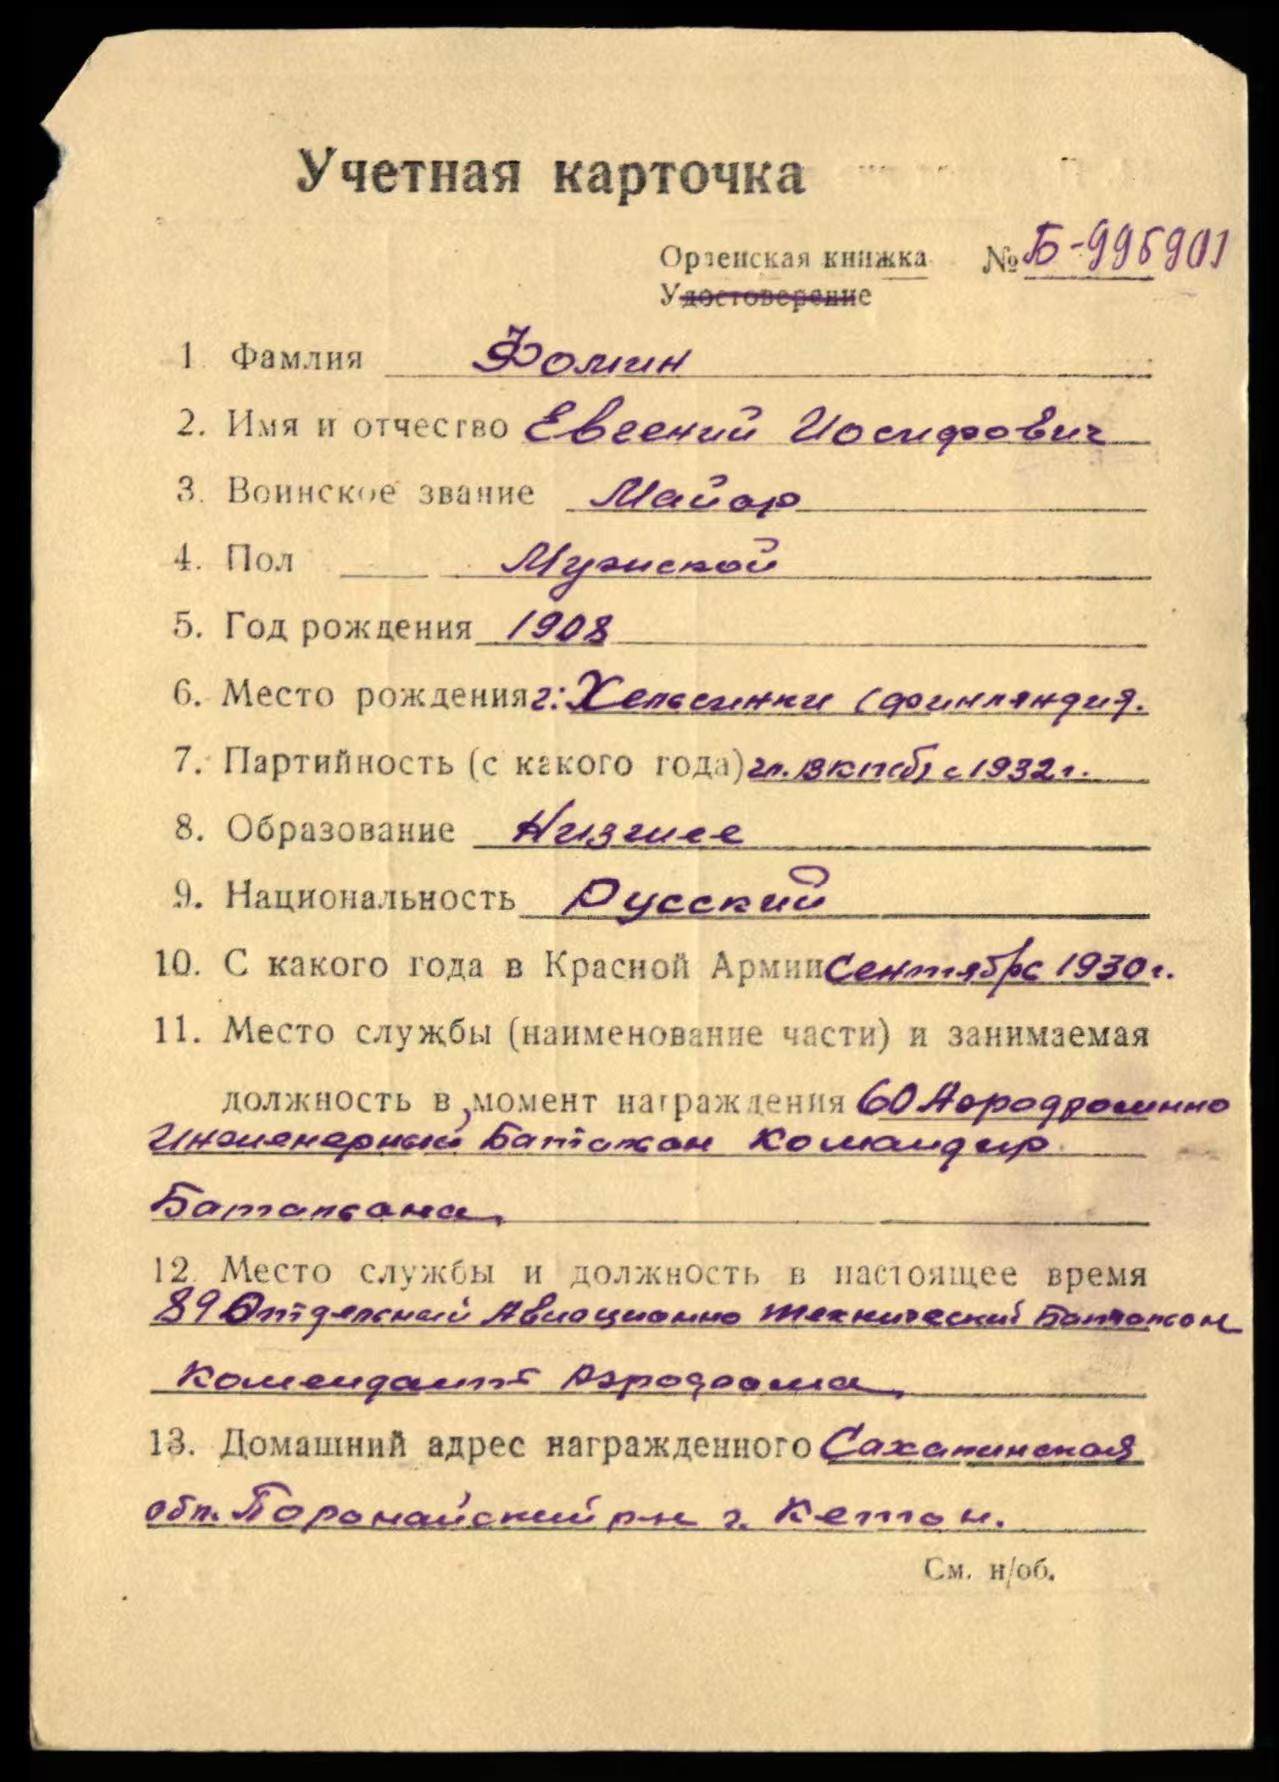 Учетная карточка
Орденская книжка № Б-995901
Удостоверение
1. Фамлия Фомин
2. Имя и отчество Евгений Иосифович
3. Воинское звание Майор
4. Пол Мужской
5. Год рождения 1908
6. Место рождения г: Хельсинки (Финляндия.
7. Партийность (с какого года) чл. ВКП(б) с 1932 г.
8. Образование Низшее
9. Национальность Русский
10. С какого года в Красной Армии Сентябрь 1930 г.
11. Место службы (наименование части) и занимаемая
должность в момент награждения 60 Аэродромно
Инженерный Батальон Командир
Батальона,
12. Место службы и должность в настоящее время
89 Отдельный Авиационно технический Батальон
Комендант Аэродрома,
13. Домашний адрес награжденного Сахалинская
обл. Поронайский р-н г. Кетон.
См. н/об.